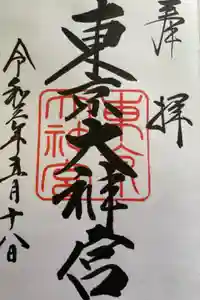 奉拝
東京大神宮
東京
大神宮
令和六年五月十八日